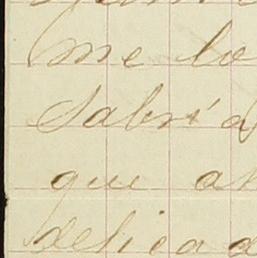 me lo
Sabria
que
delicad